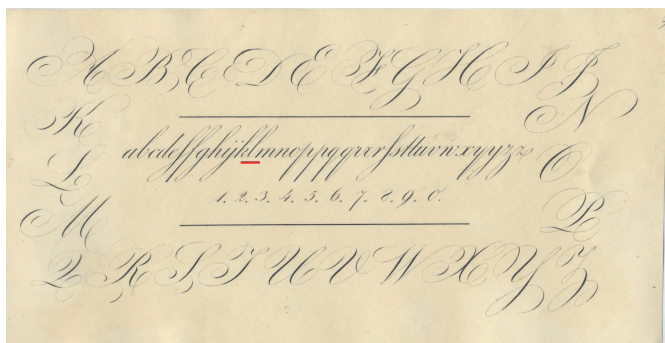 A B C D E F G H I J
K
L
M
abcdeffghijklmnoppqqrrrſsttuvwxyyzz
1. 2. 3. 4. 5. 6. 7. 8. 9. 0.
N
O
P
Q R S T U V W X Y Z